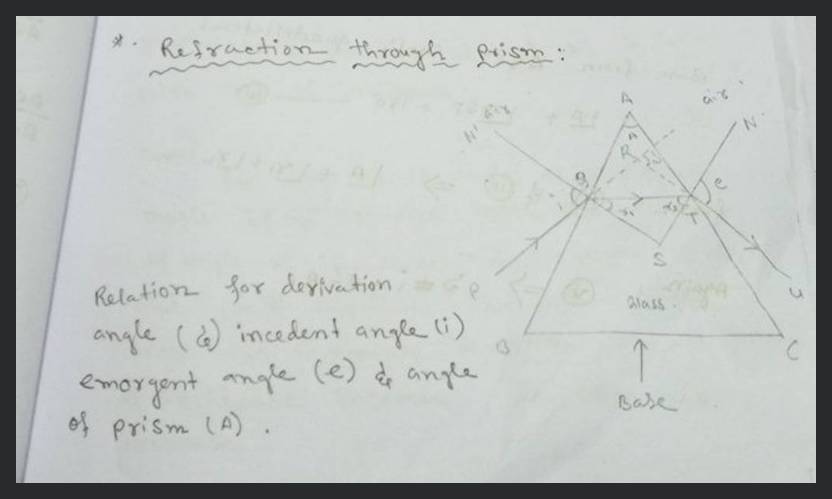 *. Refraction through prism:
A
air
air
N'
N
A
R
δ
Q
e
i
r₁
r₂
T
S
P
U
glass.
B
C
Base
Relation for derivation
angle (δ) incedent angle (i)
emorgent angle (e) & angle
of prism (A).